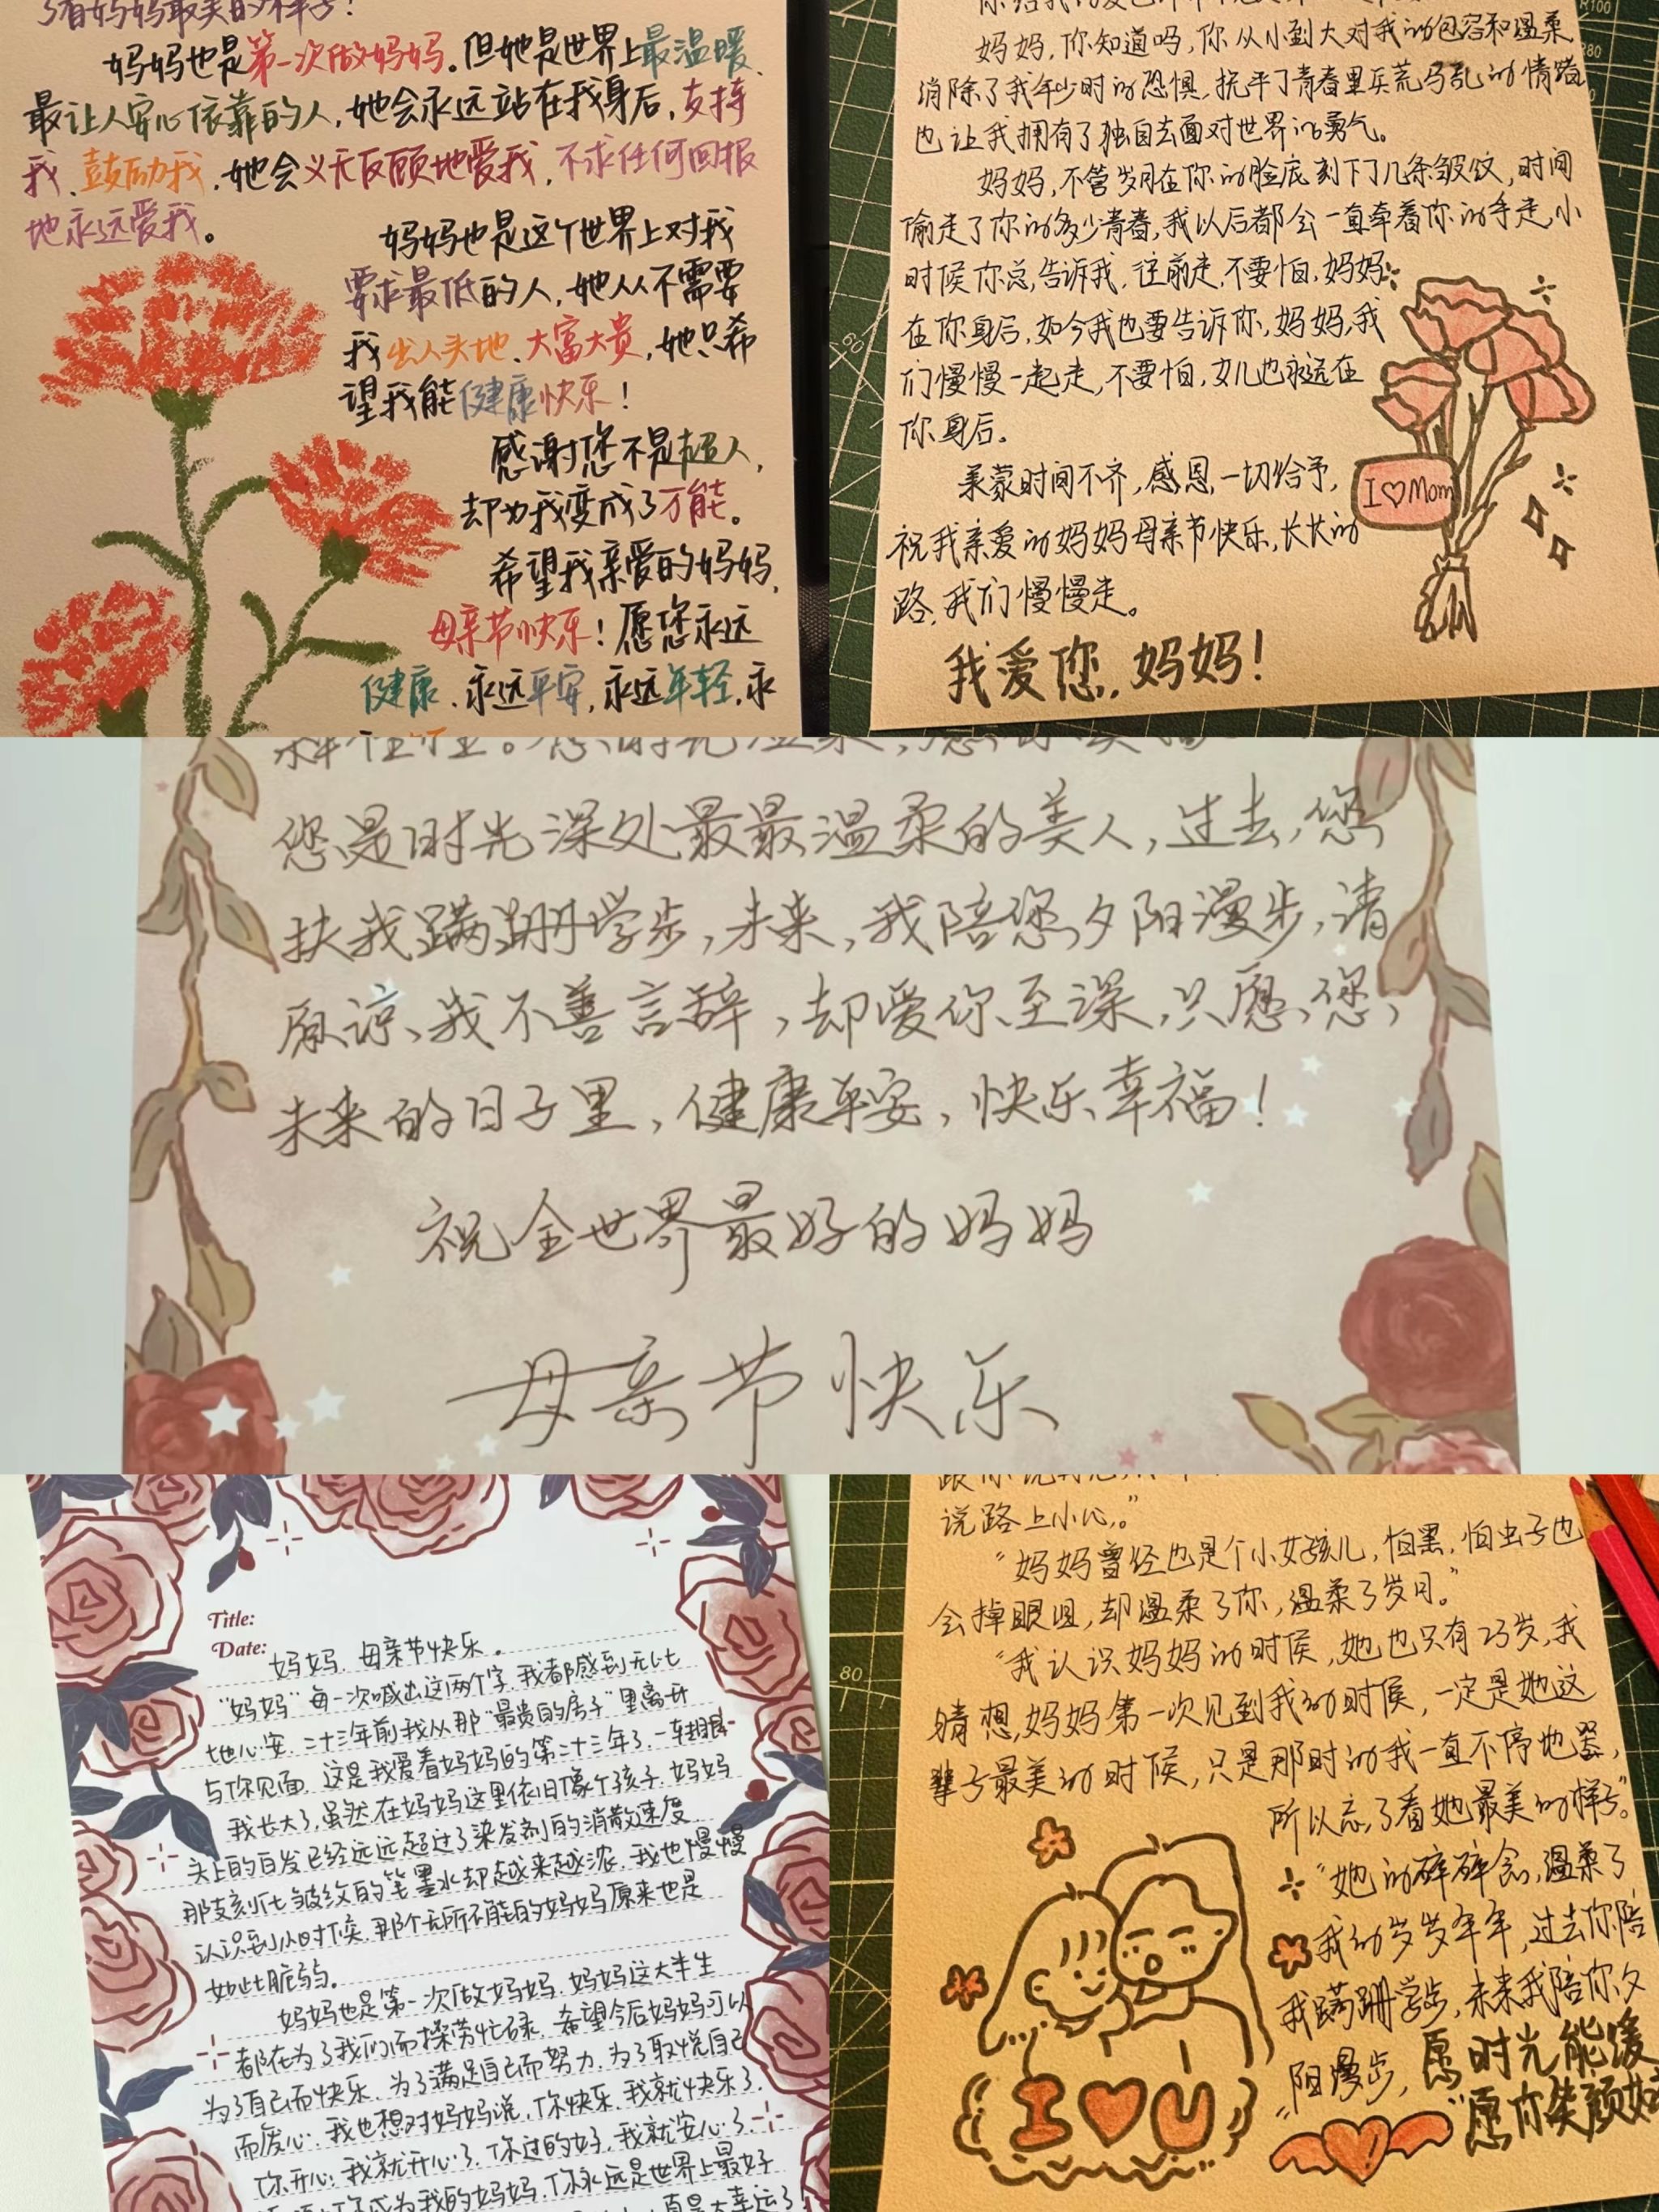 了看妈妈最美的样子!
妈妈也是第一次做妈妈。但她是世界上最温暖、
最让人安心依靠的人,她会永远站在我身后,支持
我、鼓励我,她会义无反顾地爱我,不求任何回报
地永远爱我。
妈妈也是这个世界上对我
要求最低的人,她从不需要
我出人头地、大富大贵,她只希
望我能健康快乐!
感谢您不是超人,
却为我变成了万能。
希望我亲爱的妈妈,
母亲节快乐!愿您永远
健康、永远平安,永远年轻,永
妈妈,你知道吗,你从小到大对我的包容和温柔
消除了我年少时的恐惧,抚平了青春里兵荒马乱的情绪
也让我拥有了独自去面对世界的勇气。
妈妈,不管岁月在你的脸庞刻下了几条皱纹,时间
偷走了你的多少青春,我以后都会一直牵着你的手走,小
时候你总告诉我,往前走,不要怕,妈妈
在你身后,如今我也要告诉你,妈妈,我
们慢慢一起走,不要怕,女儿也永远在
你身后。
承蒙时间不齐,感恩一切给予,
I♡Mom
祝我亲爱的妈妈母亲节快乐,长长的
路,我们慢慢走。
我爱您,妈妈!
您是时光深处最最温柔的美人,过去,您
扶我蹒跚学步,未来,我陪您夕阳漫步,请
原谅我不善言辞,却爱你至深,只愿您,
未来的日子里,健康平安,快乐幸福!
祝全世界最好的妈妈
母亲节快乐
Title:
Date:
妈妈、母亲节快乐。
“妈妈”每一次喊出这两个字,我都感到无比
地心安,二十三年前我从那“最贵的房子”里离开
与你见面,这是我爱着妈妈的第二十三年了,一转眼
我长大了,虽然在妈妈这里依旧像个孩子,妈妈
头上的白发已经远远超过了染发剂的消散速度
那支刻化皱纹的笔墨水却越来越浓,我也慢慢
认识到小时候,那个无所不能的妈妈原来也是
如此脆弱。
妈妈也是第一次做妈妈,妈妈这大半生
都在为了我们而操劳忙碌,希望今后妈妈可以
为了自己而快乐,为了满足自己而努力,为了取悦自己
而废心,我也想对妈妈说,你快乐,我就快乐了.
你开心,我就开心了,你过的好,我就安心了.
你成为我的妈妈,你永远是世界上最好
说路上小心。”
“妈妈曾经也是个小女孩儿,怕黑,怕虫子也
会掉眼泪,却温柔了你,温柔了岁月。”
“我认识妈妈的时候,她也只有23岁,我
猜想,妈妈第一次见到我的时候,一定是她这
辈子最美的时候,只是那时的我一直不停地哭,
所以忘了看她最美的样子”。
“她的碎碎念,温柔了
我的岁岁年年,过去你陪
我蹒跚学步,未来我陪你夕
阳漫步,愿时光能缓
“愿你笑颜如
I♥U